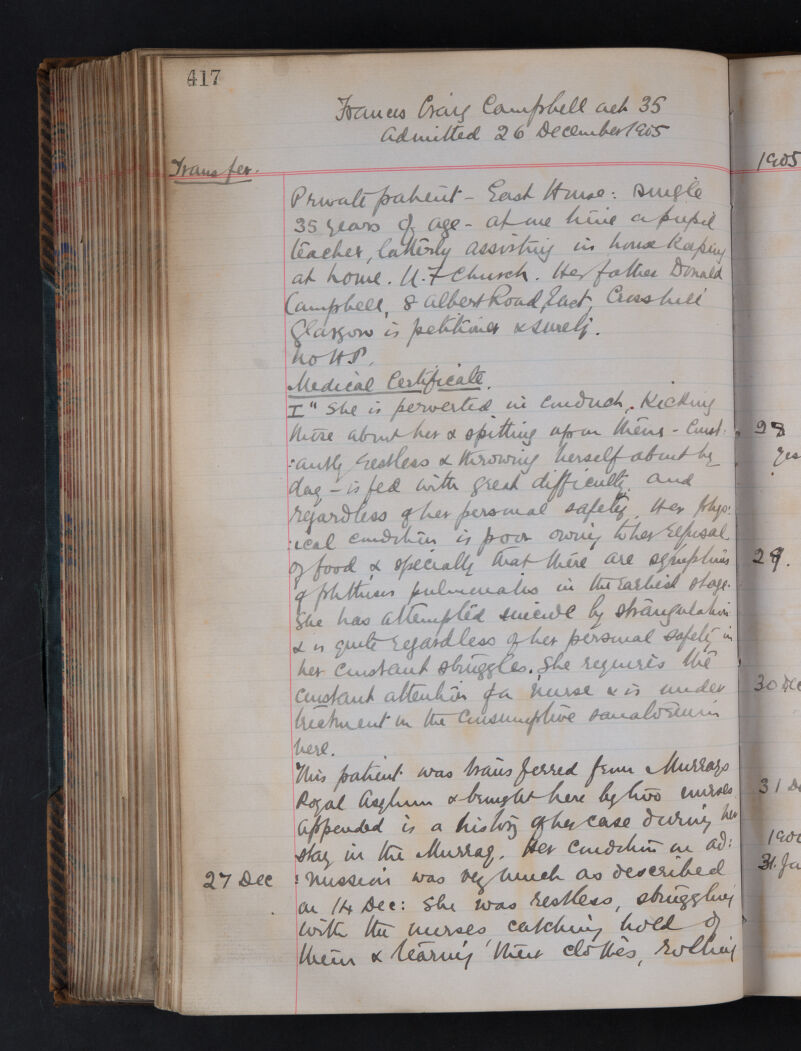 417
Frances Craig Campbell aet 35
admitted 26 December 1905
Transfer.
Private patient - East House: single
35 years of age - at one time a pupil
teacher, latterly assisting in house keeping
at home. U.F Church. Her father Donald
Campbell, 8 Albert Road, East, Crosshill
Glasgow is petitioner & surety.
No H.P.
Medical Certificate.
I " She is perverted in conduct, Kicking
those about her & spitting upon them - Const:
:antly restless & throwing herself about by
day - is fed with great difficulty, and
regardless of her personal safety. Her phys:
:ical condition is poor owing to her refusal
of food & specially that there are symptoms
of phthisis pulmonalis in the earliest stage.
She has attempted suicide by strangulation
& is quite regardless of her personal safety in
her constant struggles. She requires the
constant attention of a nurse & is under
treatment in the consumptive sanatorium
here.
This patient was transferred from Murrays
Royal Asylum & brought here by two nurses
appended is a history of her case during her
stay in the Murray. Her condition on ad:
27 Dec :mission was very much as described
on 14 Dec: She was restless, struggling
with the nurses catching hold of
them & tearing their clothes, rolling
1905
28
29.
30 Dec
31 De
31. Ja